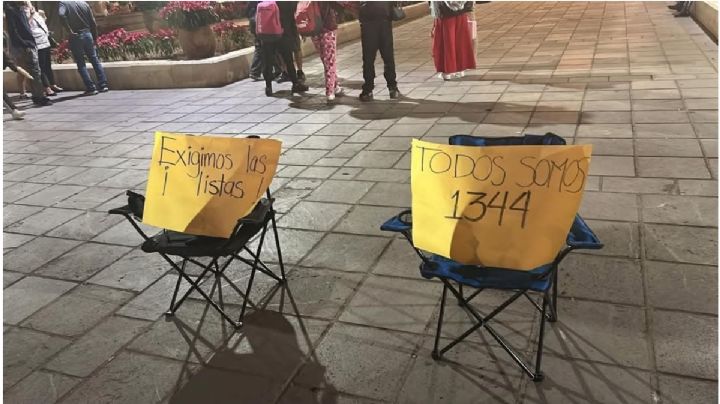 Exigimos las
¡ listas !
TODOS SOMOS
1344